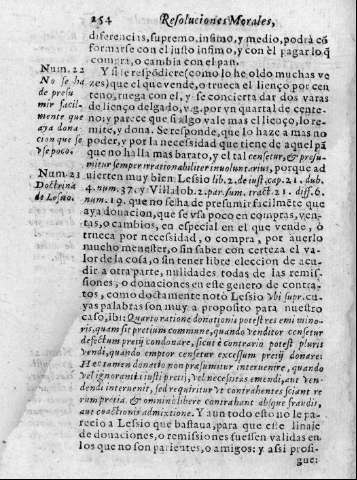 254 Resoluciones Morales,
diferencias, supremo, infimo, y medio, podrà cõ
formarse con el justo infimo, y con èl pagar lo q̃
compra, o cambia con el pan.
Num. 22
No se ha
de presu
mir facil-
mente que
aya dona
cion que se
vse poco.
Y si se respõdiere (como lo he oldo muchas ve
zes) que el que vende, o trueca el lienço por cen
teno, ruega con el, y se concierta dar dos varas
de lienço delgado, v.g. por vn quartal de cente-
no; y parece que si algo vale mas el lienço, lo re-
mite, y dona. Se responde, que lo haze a mas no
poder, y por la necessidad que tiene de aquel pã
que no halla mas barato, y el tal censetur, & præsu-
mitur semper irrationabiliter involuntarius, porque ad
Num. 23
Doctrina
de Lessio.
uierten muy bien Lessio lib. 2. de iust. cap. 21. dub.
4. num. 37. y Villalob. 2. par. sum. tract. 21. diff. 6.
num. 19. que no se ha de presumir facilmẽte que
aya donacion, que se vsa poco en compras, ven-
tas, o cambios, en especial en el que vende, ò
trueca por necessidad, o compra, por auerlo
mucho menester, o sin saber con certeza el va-
lor de la cosa, o sin tener libre eleccion de acu-
dir a otra parte, nulidades todas de las remis-
siones, o donaciones en este genero de contra-
tos, como doctamente notò Lessio Vbi supr. cu-
yas palabras son muy a proposito para nuestro
caso, ibi: Quarto ratione donationis potest res emi mino-
ris, quam sit pretium commune, quando venditor censetur
defectum pretij condonare, sicut è contrario potest pluris
vendi, quando emptor censetur excessum pretij donare.
Hæc tamen donatio non præsumitur intervenire, quando
vel ignorantia iusti pretij, vel necessitas emendi, aut ven-
dendi intervenit, sed requiritur vt contrahentes sciant re
rum pretia, & omnino libere contrahant absque fraudis,
aut coactionis admixtione. Y aun todo esto no le pa-
recio a Lessio que bastaua, para que este linaje
de donaciones, o remissiones fuessen validas en
los que no son parientes, o amigos: y assi prosi-
gue: